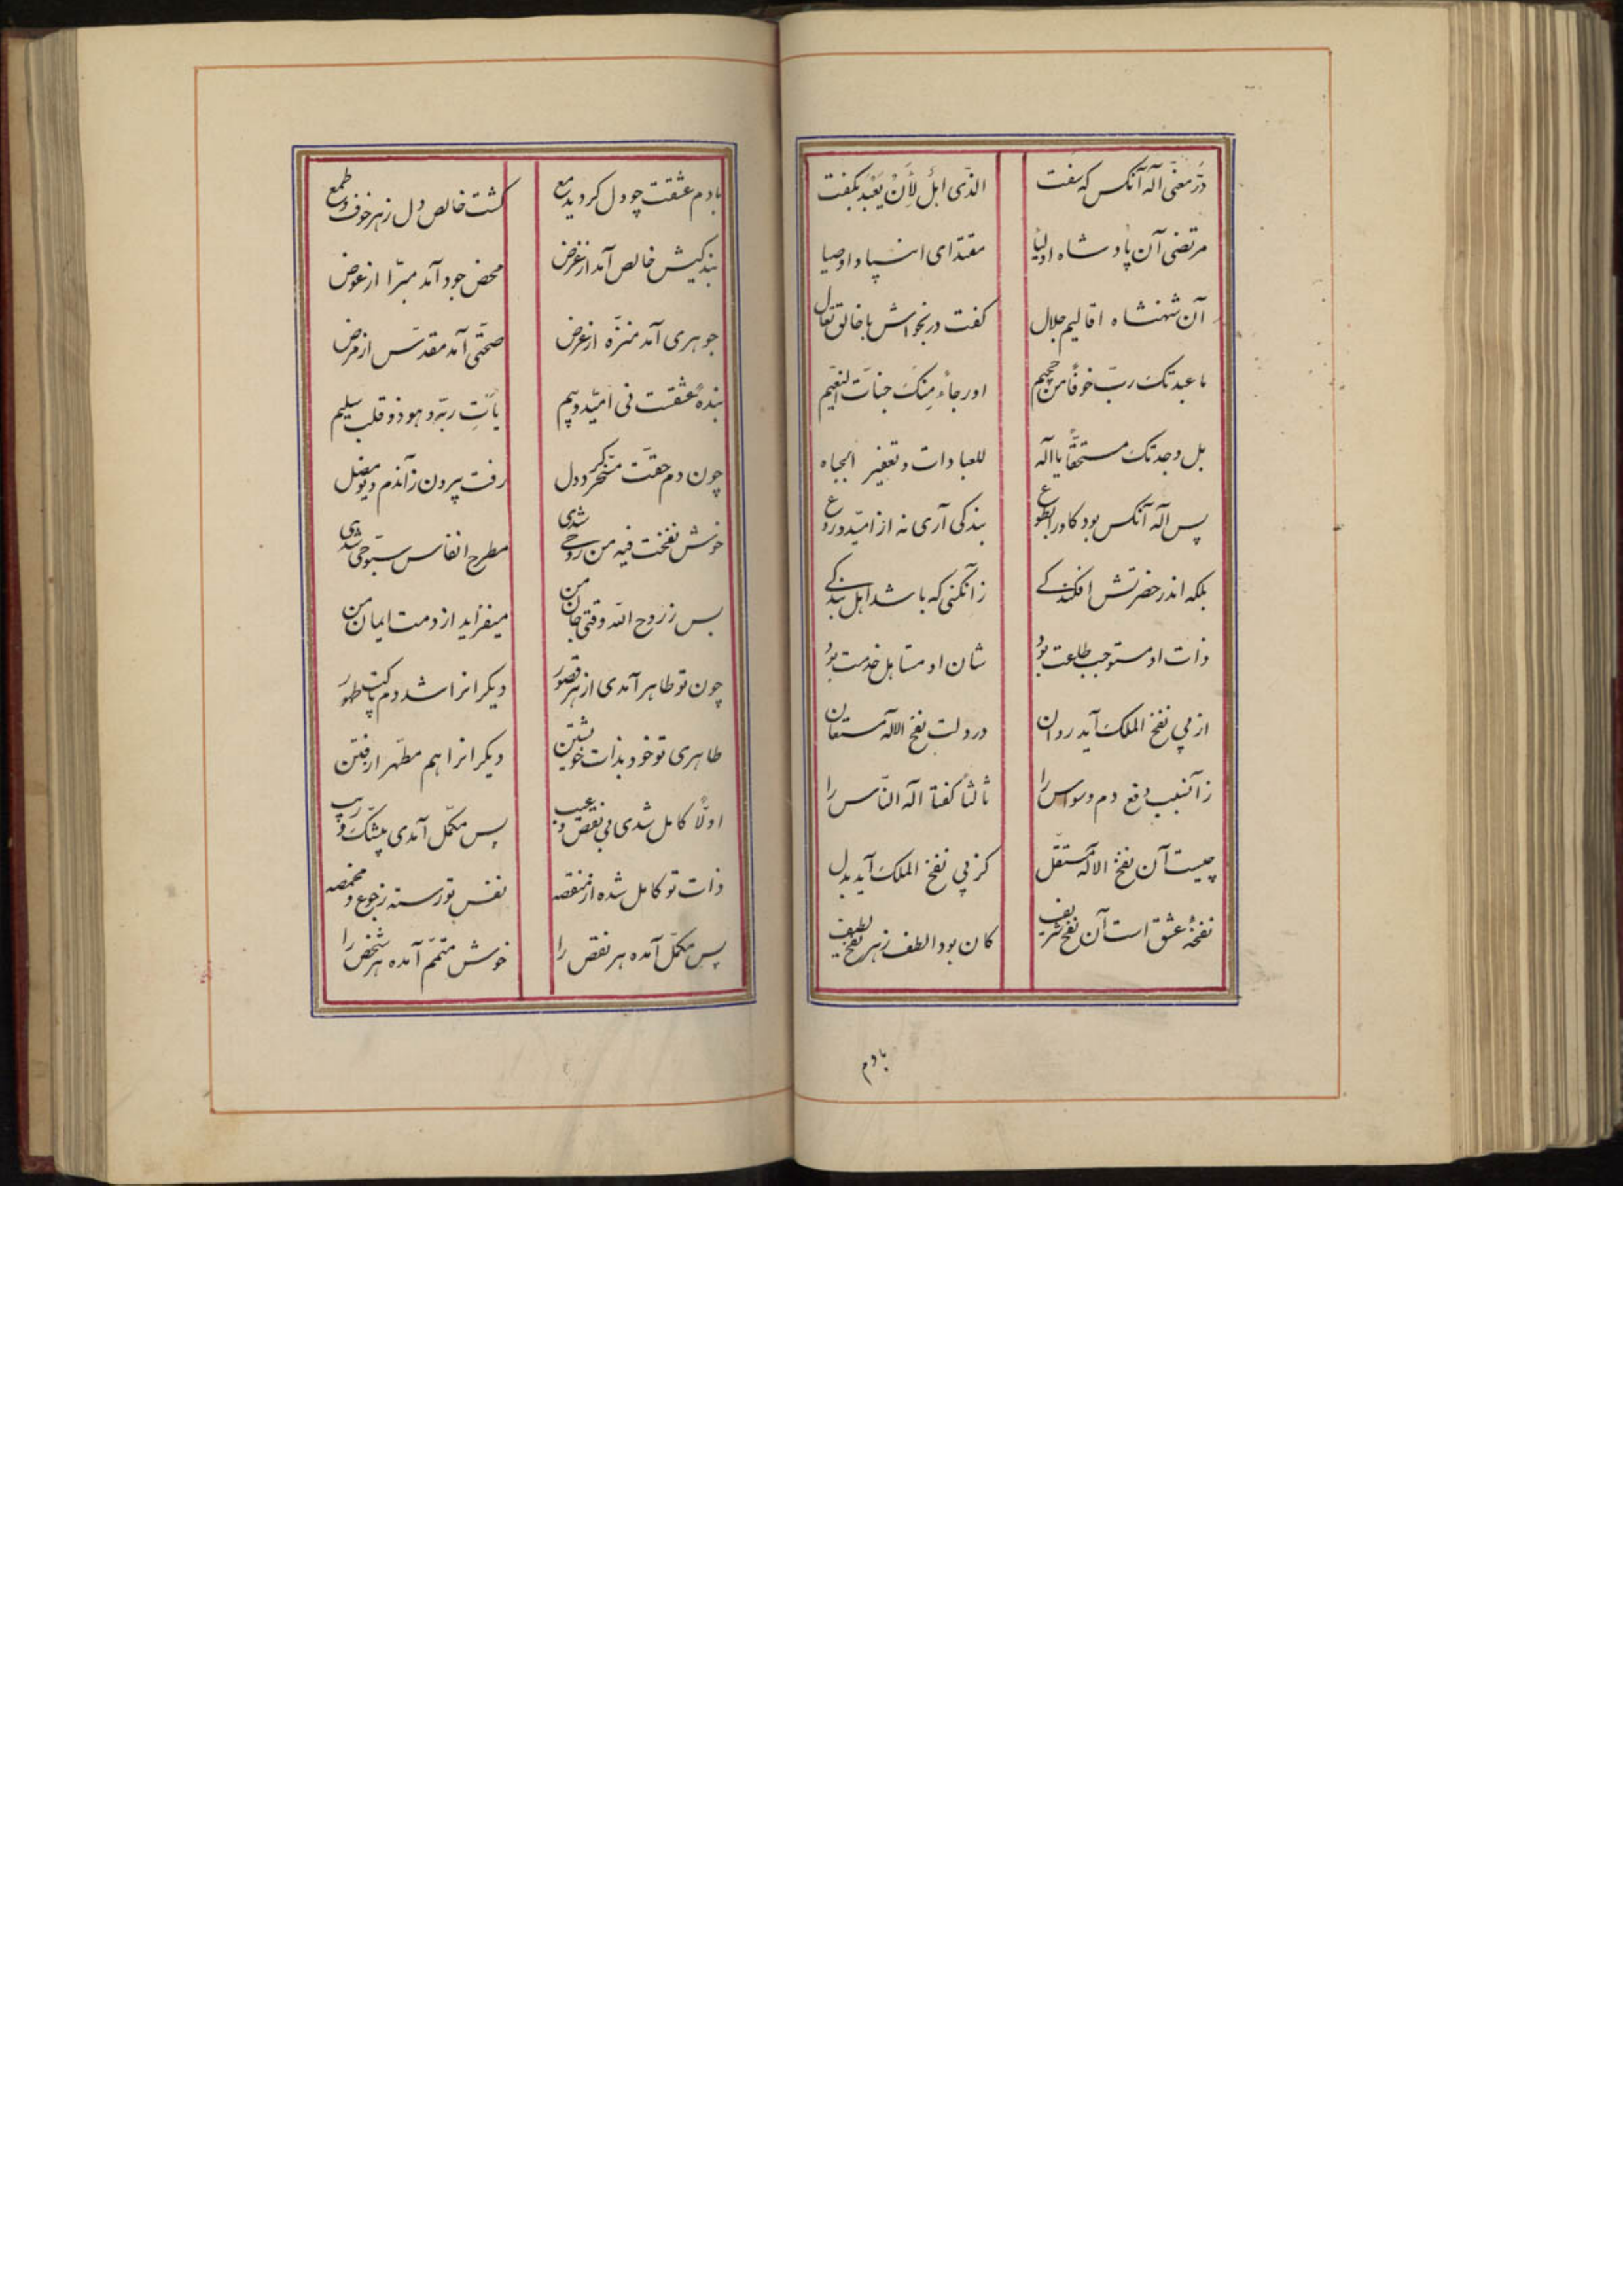 درّ معنی اله آنکس که سفت
الذّی اهلٌ لأَنْ یُعْبَد بگفت
مرتضی آن پادشاه اولیا
مقتدای انبیا و اوصیا
آن شهنشاه اقالیم جلال
گفت در نجواش با خالق تعال
ما عبدتک ربّ خوفًا من جحیم
او رجاءً مِنکَ جنّات النعیم
بل وجدتک مستحقًّا یا اله
للعبادات و تعفیر الجباه
پس اله آنکس بود کاو را بطوع
بندکی آری نه از امّید و روع
بلکه اندر حضرتش افکندکے
زآن کنی که باشد اهل بندکے
ذات او مستوجب طاعت بود
شان او مستاهل خدمت بود
از پی نفخ الملک آید روان
در دلت نفخ الاله مستعان
زآنسبب دفع دم وسواس را
ثالثًا گفتا اله النّاس را
چیست آن نفخ الاله مستقلّ
کز پی نفخ الملک آید بدل
نفخهٔ عشق است آن نفخ شریف
کان بود الطف زهر نفخ لطیف
بادم
بادم عشقت چو دل کردید مع
کشت خالص دل زهر خوف و طمع
بندکیش خالص آمد از غرض
محض جود آمد مبرّا از عوض
جوهری آمد منزّه از عرض
صحتی آمد مقدّس از مرض
بندهٔ عشقست نی امّید و بیم
یأتِ ربّه و هو ذو قلب سلیم
چون دم حقّت مسخّر کرد دل
رفت بیرون زآندم دیو مضل
خوش نفخت فیه من روحی شدی
مطرح انفاس سبّوحی شدی
بس ز روح الله وقتی جان من
میفزاید از دمت ایمان من
چون تو طاهر آمدی از هر قصور
دیکرانرا شد دم پاکت طهور
طاهری تو خود بذات خویشتن
دیکرانرا هم مطهّر از فتن
اولًا کامل شدی بی نقص و عیب
پس مکمّل آمدی بیشکّ و ریب
ذات تو کامل شده از منقصه
نفس تو رسته ز جوع و مخمصه
پس مکمّل آمده هر نقص را
خوش متمّم آمده هر شخص را